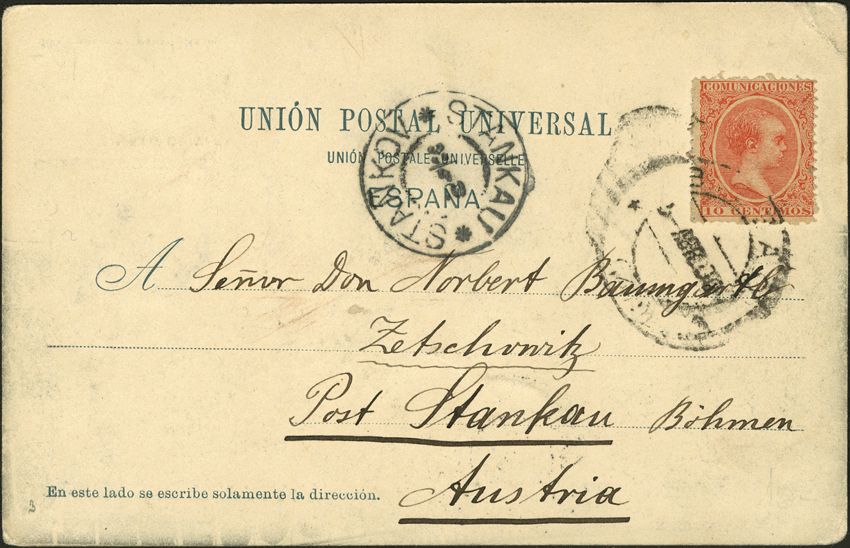 UNIÓN POSTAL UNIVERSAL
UNIÓN POSTALE UNIVERSELLE
ESPAÑA
COMUNICACIONES
10 CENTIMOS
STANKAU * STAŇKOV *
ABR
A Señor Don Norbert Baumgartl
Zetschowitz
Post Stankau Böhmen
Austria
En este lado se escribe solamente la dirección.